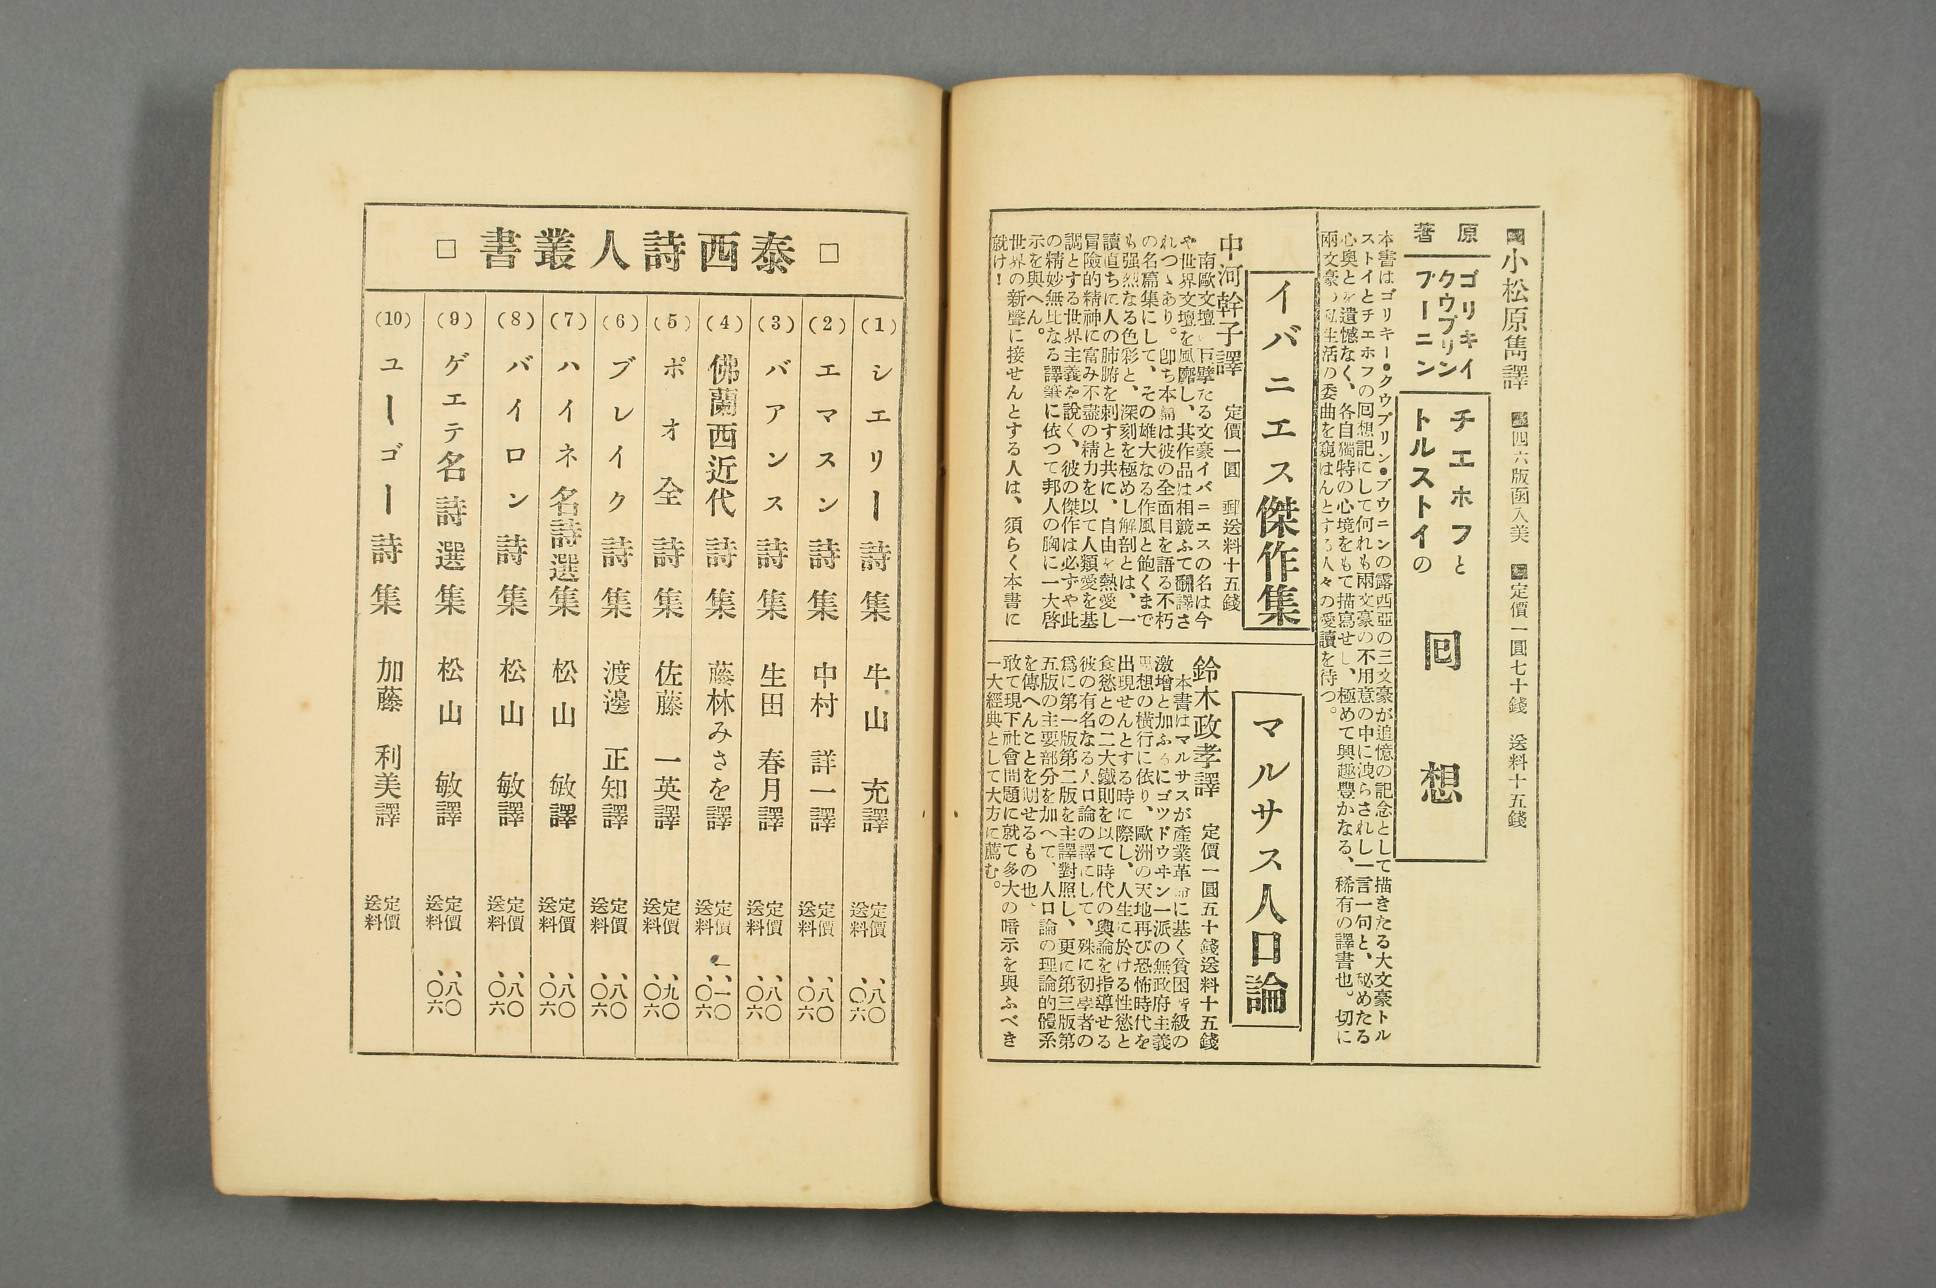 小松原雋譯 四六版函入美 定價一圓七十錢 送料十五錢
原著
ゴリキイ
クウプリン
ブーニン
チエホフと
トルストイの
回想
本書はゴリキー・クウプリン・ブウニンの露西亞の三文豪が追憶の記念として描きたる大文豪トル
ストイとチエホフの回想記にして何れも兩文豪の不用意の中に洩らされし一言一句と、秘めたる
心奥とを遺憾なく、各自獨特の心境をもて描寫せし、極めて興趣豐かなる、稀有の譯書也。切に
兩文豪の私生活の委曲を窺はんとする人々の愛讀を待つ。
イバニエス傑作集
中河幹子譯 定價一圓 郵送料十五錢
南歐文壇の巨擘たる文豪イバニエスの名は今
や世界文壇を風靡し、其作品は相競ふて飜譯さ
れつゝあり。卽ち本篇は彼の全面目を語る不朽
の名篇集にして、その雄大なる作風と飽くまで
も强烈なる色彩と、深刻を極めし解剖とは、一
讀直ちに人の肺腑を刺すと共に、自由を熱愛し
冒險的精神に富み不盡の精力を以て人類愛を基
調とする世界主義を說く、彼の傑作は必ずや此
の精妙無比なる譯筆に依つて邦人の胸に一大啓
示を與へん。
世界の新聲に接せんとする人は、須らく本書に
就け!
マルサス人口論
鈴木政孝譯 定價一圓五十錢送料十五錢
本書はマルサスが産業革命に基く貧困階級の
激增と加ふるにゴツドウヰン一派の無政府主義
思想の橫行に依り、歐洲の天地再び恐怖時代を
出現せんとする時に際し、人生に於ける性慾と
食慾との二大鐵則を以て時代の輿論を指導せる
彼の有名なる人口論の譯にして、殊に初學者の
爲に第一版第二版を主譯對照し、更に第三版第
五版の主要部分を加へて、人口論の理論的體系
を傳へんことを期せるもの也、
敢て現下社會問題に就て多大の暗示を與ふべき
一大經典として大方に薦む。
□ 泰西詩人叢書 □
(1) シエリー詩集 牛山充譯 定價、八〇 送料、〇六
(2) エマスン詩集 中村詳一譯 定價、八〇 送料、〇六
(3) バアンス詩集 生田春月譯 定價、八〇 送料、〇六
(4) 佛蘭西近代詩集 藤林みさを譯 定價一、一〇 送料、〇六
(5) ポオ全詩集 佐藤一英譯 定價、九〇 送料、〇六
(6) ブレイク詩集 渡邊正知譯 定價、八〇 送料、〇六
(7) ハイネ名詩選集 松山敏譯 定價、八〇 送料、〇六
(8) バイロン詩集 松山敏譯 定價、八〇 送料、〇六
(9) ゲエテ名詩選集 松山敏譯 定價、八〇 送料、〇六
(10) ユーゴー詩集 加藤利美譯 定價 送料